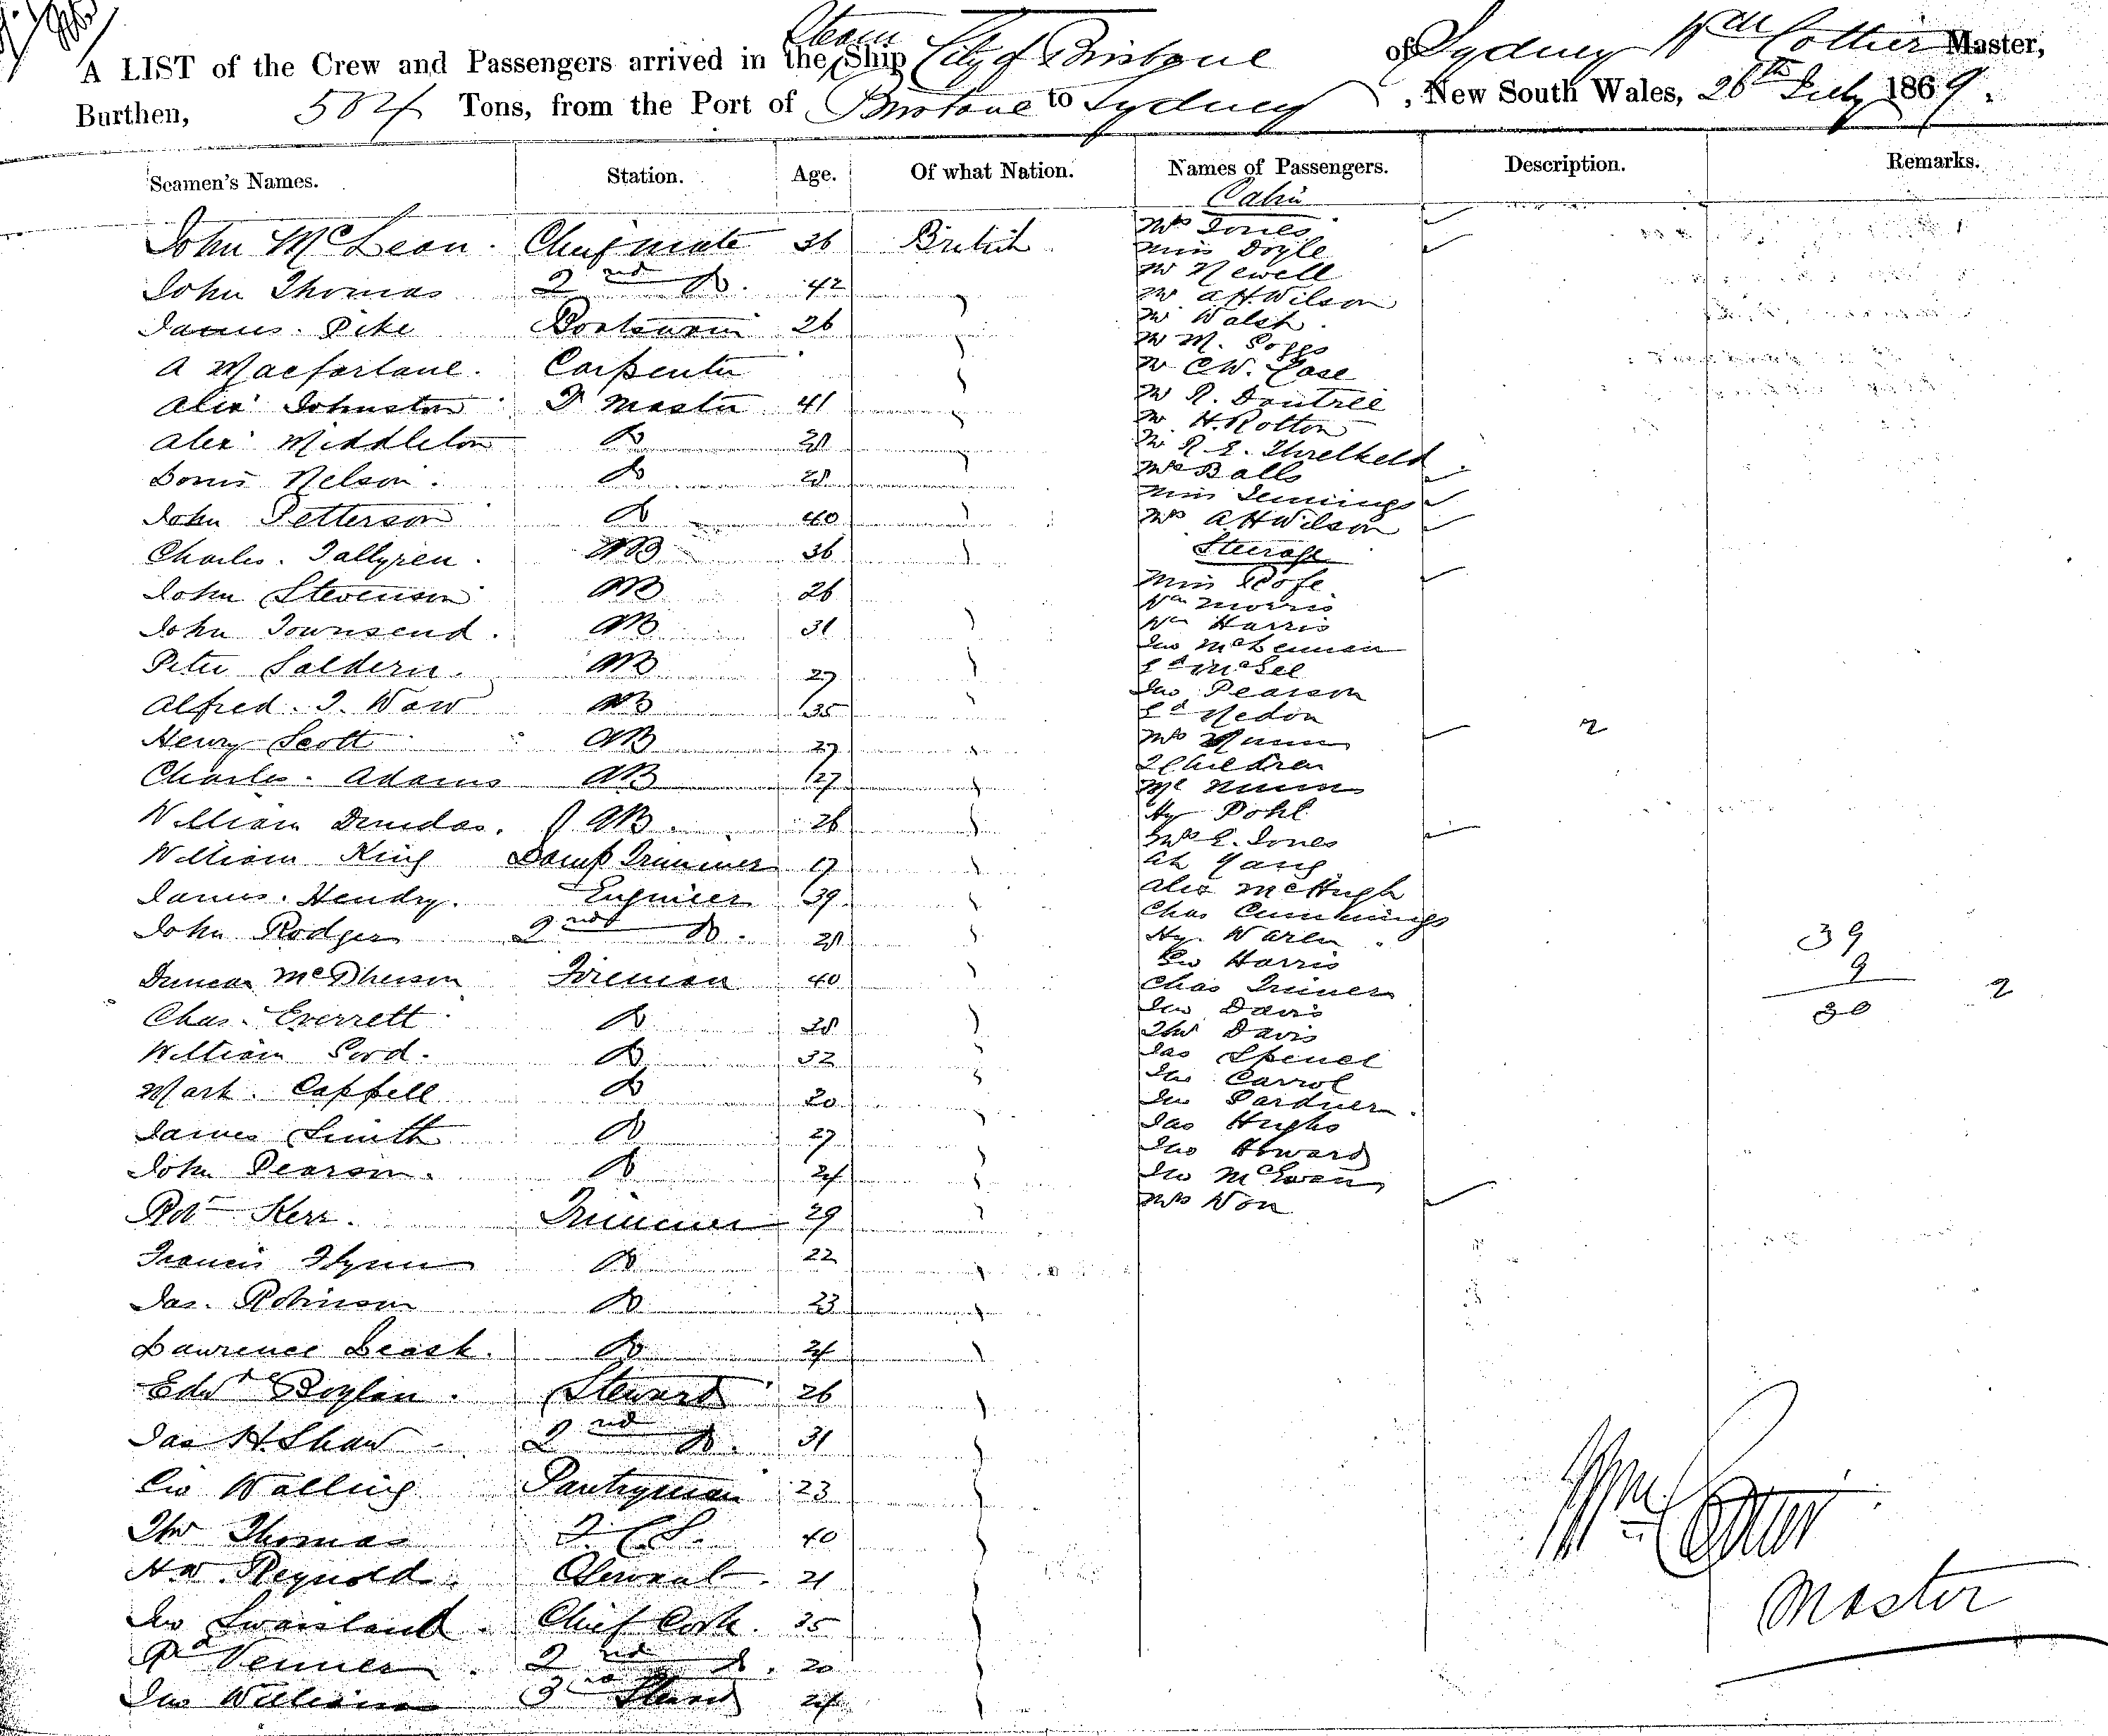 A LIST of the Crew and Passengers arrived in the Steam Ship City of Brisbane of Sydney Wm Cottier Master,
Burthen, 504 Tons, from the Port of Brisbane to Sydney, New South Wales, 26th July 1869.
Seamen's Names. Station. Age. Of what Nation. Names of Passengers. Description. Remarks.
John McLean. Chief mate 36 British
John Thomas 2nd Do. 42
James Pike Boatswain 26
A Macfarlane. Carpenter
Alexr Johnston Qr Master 41
Alexr Middleton Do
Nelson. Do
John Petterson Do 40
Charles. AB 36
John Stevenson AB 26
John Townsend. AB 31
Peter Saldern. AB 27
Alfred. J. Waw AB 35
Henry Scott AB 27
Charles. Adams AB 27
William Dundas. AB. 26
William King Lamp Trimmer 17
James. Hendry. Engineer 39
John Rodger 2nd Do.
Duncan McPherson Fireman 40
Chas. Everrett Do
William Ford. Do 32
Mark. Cappell Do 20
James Smith Do 27
John Pearson. Do 24
Robt Kerr. Trimmer 29
Francis Flynn Do 22
Jas. Robinson Do 23
Lawrence Leask. Do 24
Edwd Boylan. Steward 26
Jas H. Shaw 2nd Do. 31
Geo Walling Pantryman 23
Thos Thomas F. C. S. 40
H.W. Reynolds. 21
Jno Swaisland. Chief Cook. 35
Rd Venner. 2nd Do. 20
Jno Williams 3rd Steward 24
Cabin
Mrs Jones
Miss Doyle
Mr Newell
Mr A H. Wilson
Mr Walsh
Mr M.
Mr C W. Case
Mr R. Dautree
Mr H. Rotton
Mr R E. Threlkeld.
Mrs Balls
Miss Jennings
Mrs A H Wilson
Steerage
Miss Rofe
Wm Morris
Wm Harris
Jno McLennan
Ed McGee
Jno Pearson
Ed Nedon
Mrs Nunn 2
2 Children
Mr Nunn
Hy Pohl
Mrs E. Jones
Ah Yang
Alex McHugh
Chas Cummings
Hy. Waren
Geo Harris
Chas Triner
Jno Davis
Thos Davis
Jas Spence
Jno Carrol
Jno Pardner.
Jas Hughs
Jno Howard
Jno McEwan
Mrs Won
39
9
30 2
Wm Cottier
Master